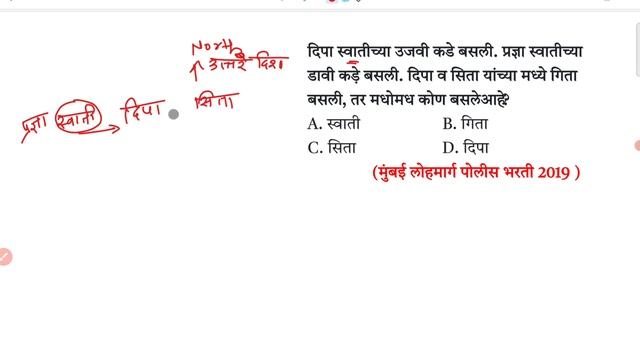 North
उत्तर दिशा
प्रज्ञा स्वाती दिपा सिता
दिपा स्वातीच्या उजवी कडे बसली. प्रज्ञा स्वातीच्या
डावी कडे बसली. दिपा व सिता यांच्या मध्ये गिता
बसली, तर मधोमध कोण बसलेआहे?
A. स्वाती B. गिता
C. सिता D. दिपा
(मुंबई लोहमार्ग पोलीस भरती 2019 )